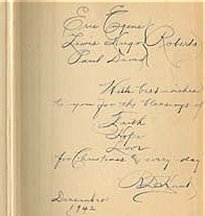 Eric Eugene
Lewis Hugo Roberts
Paul David
With best wishes
to you for the blessings of
Faith
Hope
Love
for Christmas & every day
December
1942